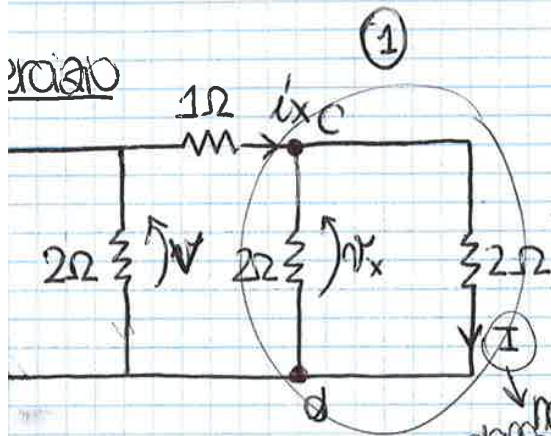 1
1Ω ix C
2Ω V 2Ω Vx 2Ω
I
d